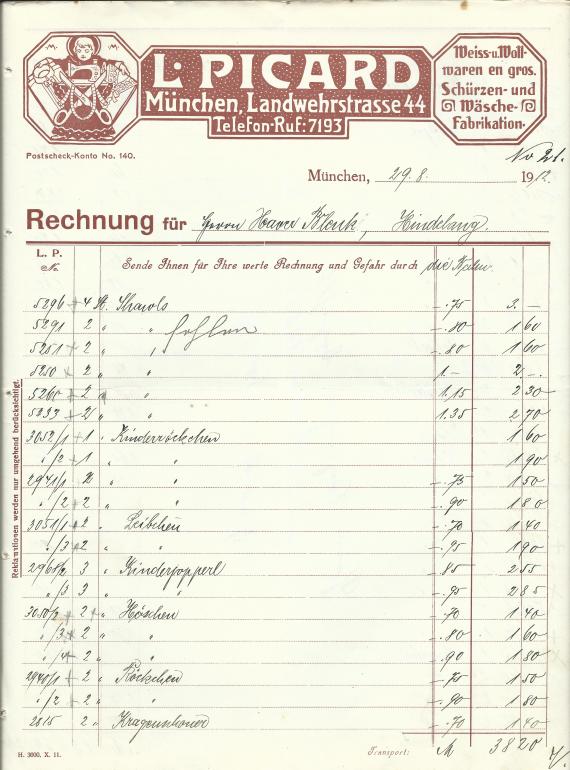 L. PICARD
München, Landwehrstrasse 44
Telefon-Ruf: 7193
Weiss- u. Woll-
waren en gros.
Schürzen- und
Wäsche-
Fabrikation.
Postscheck-Konto No. 140.
No 21.
München, 29. 8. 1912.
Rechnung für Herrn Xaver Blenk, Hindelang.
L. P.
No.
Sende Ihnen für Ihre werte Rechnung und Gefahr durch
5296 + 4 St. Shawls -.75 3.-
5291 2 " " fehlen -.80 1 60
5251 + 2 " " -.80 1 60
5250 × 2 " " 1.- 2-.
5260 + 2 " " 1.15 2 30
5233 + 2 " " 1.35 2 70
3052/1 + 1 " Kinderröckchen 1 60
" /2 + 1 " " 1 90
2941/1 2 " " -.75 1 50
" /2 + 2 " " -.90 1 80
3051/1 + 2 " Leibchen -.70 1 40
" /3 + 2 " " -.95 1 90
2968/2 3 " Kinderjopperl 85 2 55
" /3 3 " " -.95 2 85
3050/2 + 2 " Höschen -.70 1 40
" /3 + 2 " " -.80 1 60
" /4 + 2 " " 90 1 80
2940/1 + 2 " Röckchen -.75 1 50
" /2 + 2 " " -.90 1 80
2815 2 " Kragenschoner -.70 1 40
Transport: M 38 20
Reklamationen werden nur umgehend berücksichtigt.
H. 3000. X. 11.